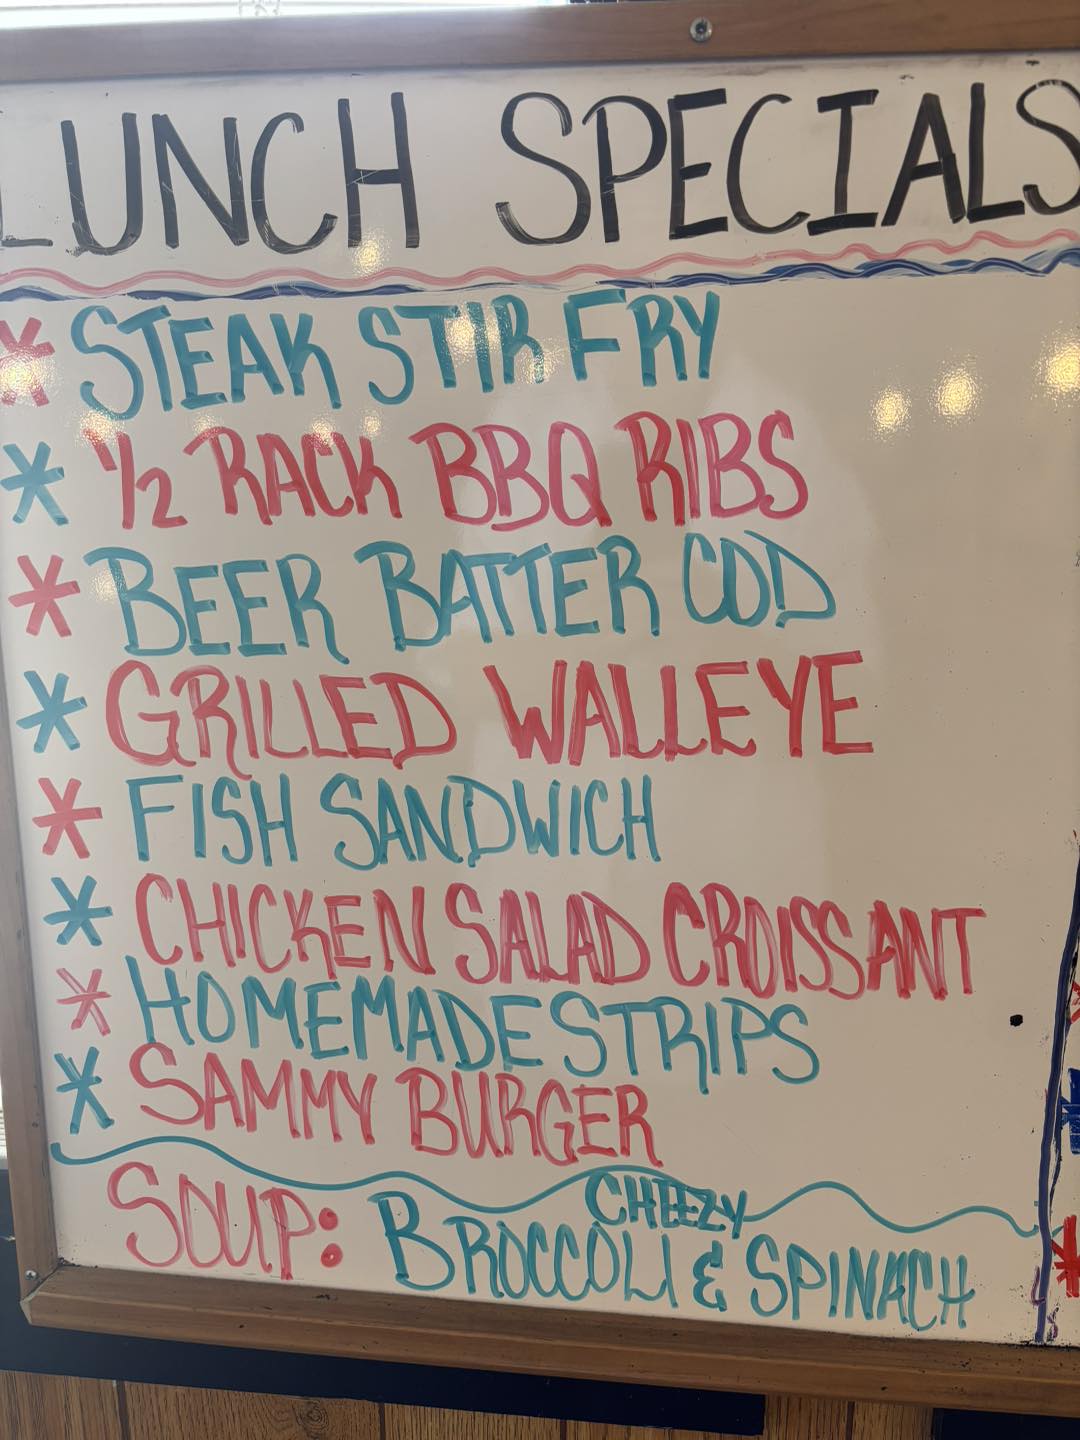 LUNCH SPECIALS
* STEAK STIR FRY
* 1/2 RACK BBQ RIBS
* BEER BATTER COD
* GRILLED WALLEYE
* FISH SANDWICH
* CHICKEN SALAD CROISSANT
* HOMEMADE STRIPS
* SAMMY BURGER
CHEEZY
SOUP: BROCCOLI & SPINACH